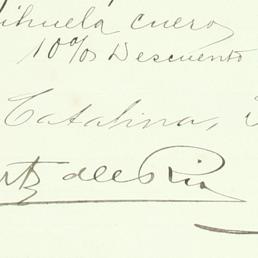 ihuela cuero
10% Descuento
Catalina,
del Rio